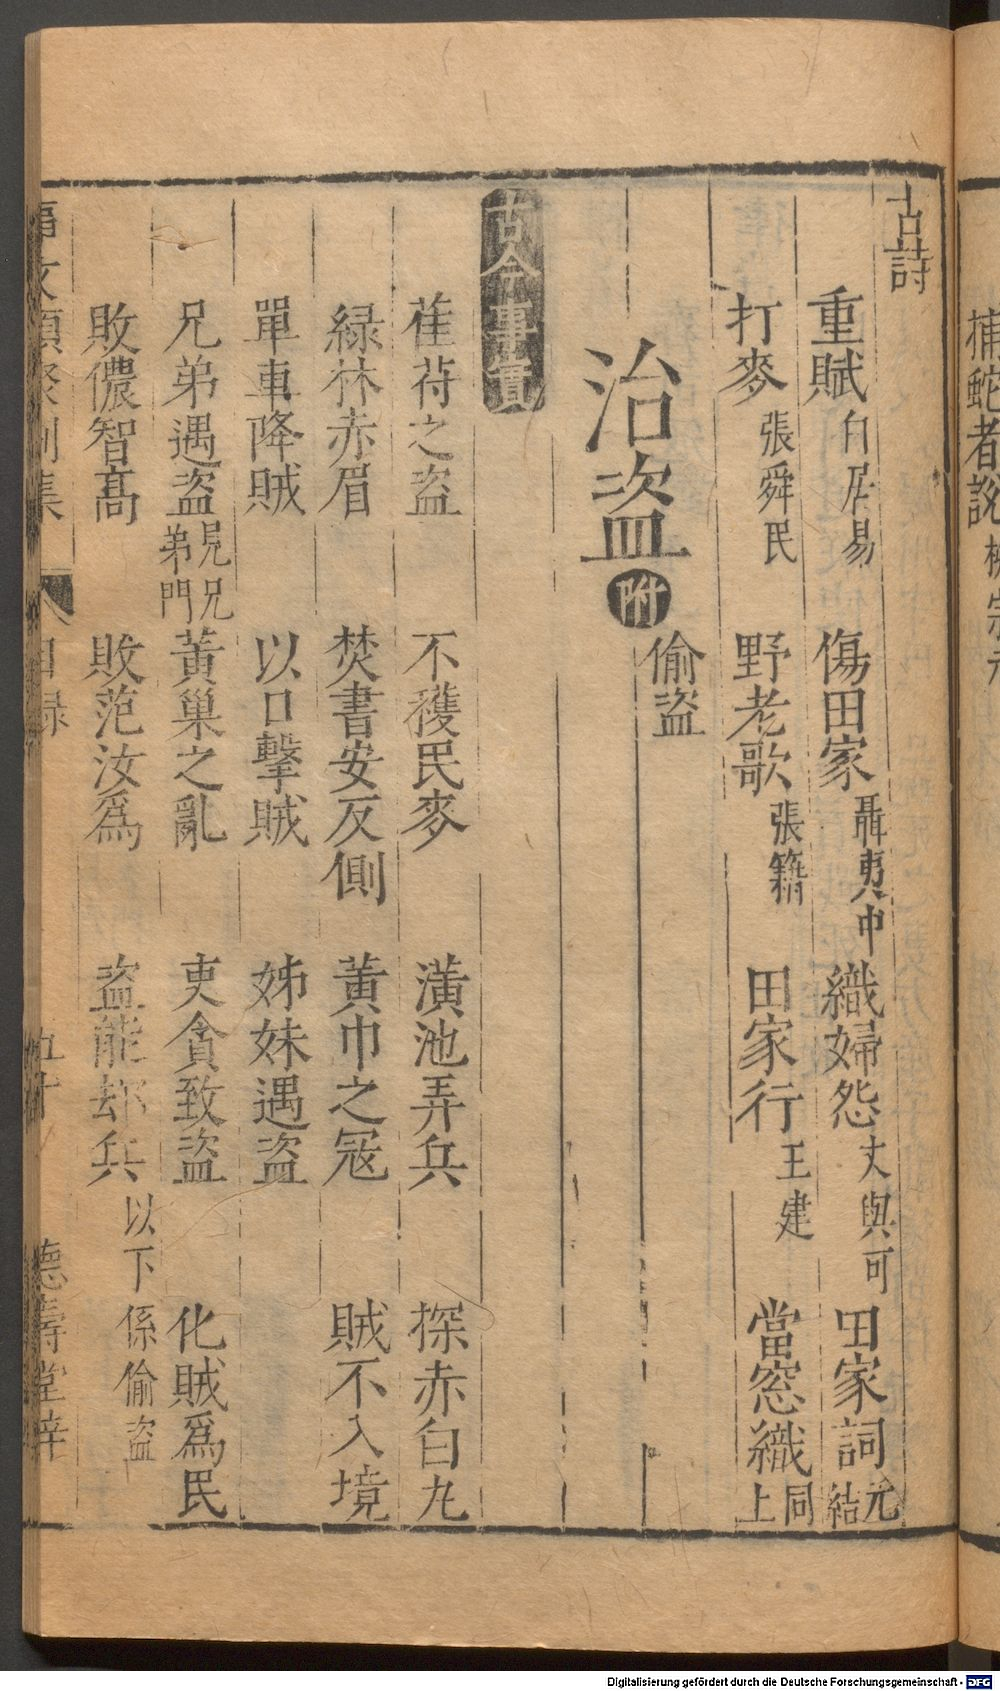 捕蛇者說 柳宗元
古詩
重賦 白居易 傷田家 聶夷中 織婦怨 文與可 田家詞 元結
打麥 張舜民 野老歌 張籍 田家行 王建 當窓織 同上
治盜 附 偷盜
古今事實
萑苻之盜 不穫民麥 潢池弄兵 探赤白丸
緑林赤眉 焚書安反側 黃巾之冦 賊不入境
單車降賊 以口擊賊 姊妹遇盜
兄弟遇盜 見兄弟門 黃巢之亂 吏貪致盜 化賊爲民
敗儂智高 敗范汝爲 盜能却兵 以下係偷盜
事文類聚別集 目録 五十 德壽堂梓
Digitalisierung gefördert durch die Deutsche Forschungsgemeinschaft - DFG